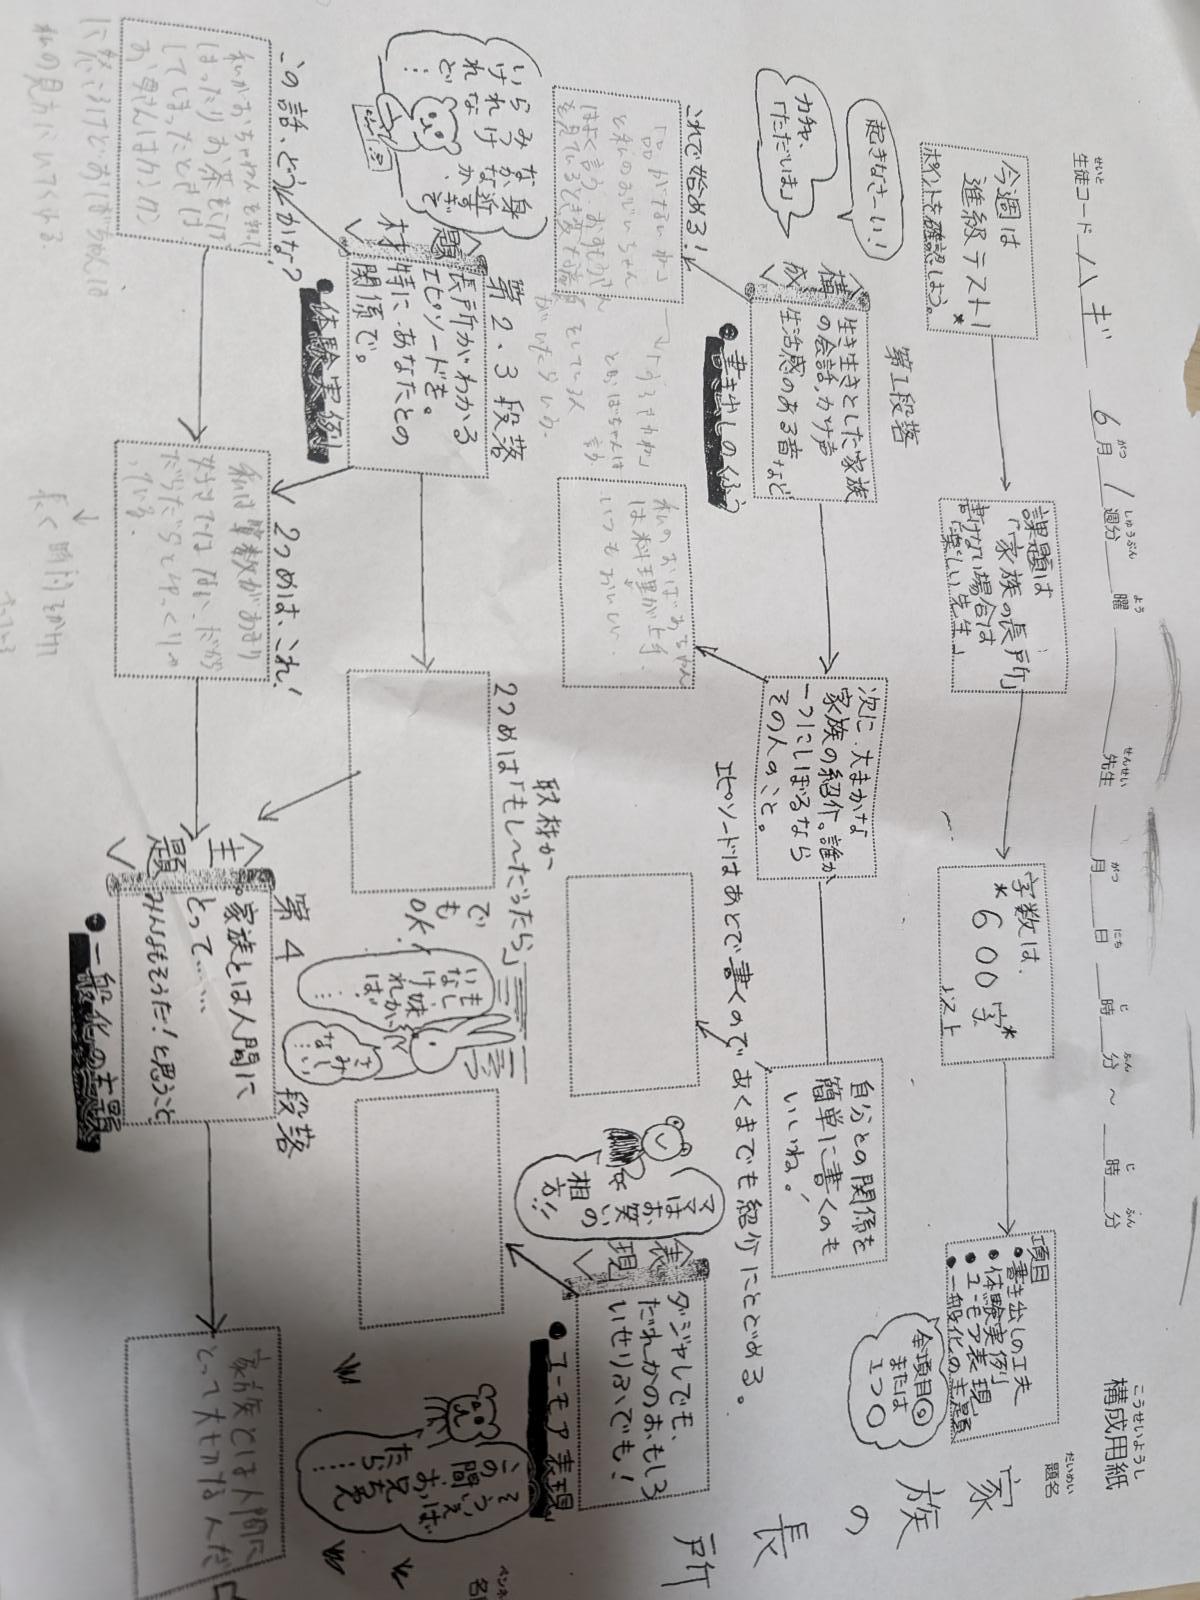 構成用紙
こうせいようし
せいと
生徒コード ハギ 6月 1週分 曜 先生 月 日 時 分 〜 時 分
がつ しゅうぶん よう せんせい がつ にち じ ふん じ ふん
だいめい
題名
家族の長所
今週は
進級テスト!
ポイントを確認しよう。
課題は
「家族の長所」
書けない場合は
字数は、
*600字*
項目
・書き出しの工夫
・体験実例
・ユーモア表現
・一般化の主題
全項目◎
または
1つ○
起きなさーい!
カチャ、
「ただいま」
第1段落
<構成>
生き生きとした家族
の会話、かけ声
生活感のある音など
・書き出しの工夫
次に、大まかな
家族の紹介。誰か
一つにしぼるなら
その人のこと。
自分との関係を
簡単に書くのも
いいね!
エピソードはあとで書くのであくまでも紹介にとどめる。
これで始める!
「品がないねぇ」
と私のおじいちゃん
はよく言う。
私のおばあちゃん
は料理が上手、
いつもおいしい。
ママは
お笑い
の
相方!!
<表現>
ダジャレでも、
だれかのおもしろ
いせりふでも!
・ユーモア表現
身近すぎ
なかなか
みつけ
られな
いけれど
…
第2・3段落
<題材>
長所がわかる
エピソードを。
特に、あなたとの
関係で。
・体験実例
取材か
2つめは「もし〜だったら」
でも
OK!
いも
なし、
け妹
れが、
ば、
…
さみ
しい
な…
そういえば
この間、お
兄ちゃん
たら
……
この話、どうかな?
私がおちゃわんを割っ
たりお茶をこぼ
してしまったときは
お母さんはカンカン
に怒るけどおばあちゃんは
私の見方にいてくれる
2つめは、これ!
私は算数があまり
好きではない、だから
長く時間をかけ
第4段落
<主題>
。家族とは人間に
とって……
みんなもそうだ!と思うこと
・一般化の主題
家族とは人間に
とって大切なんだ